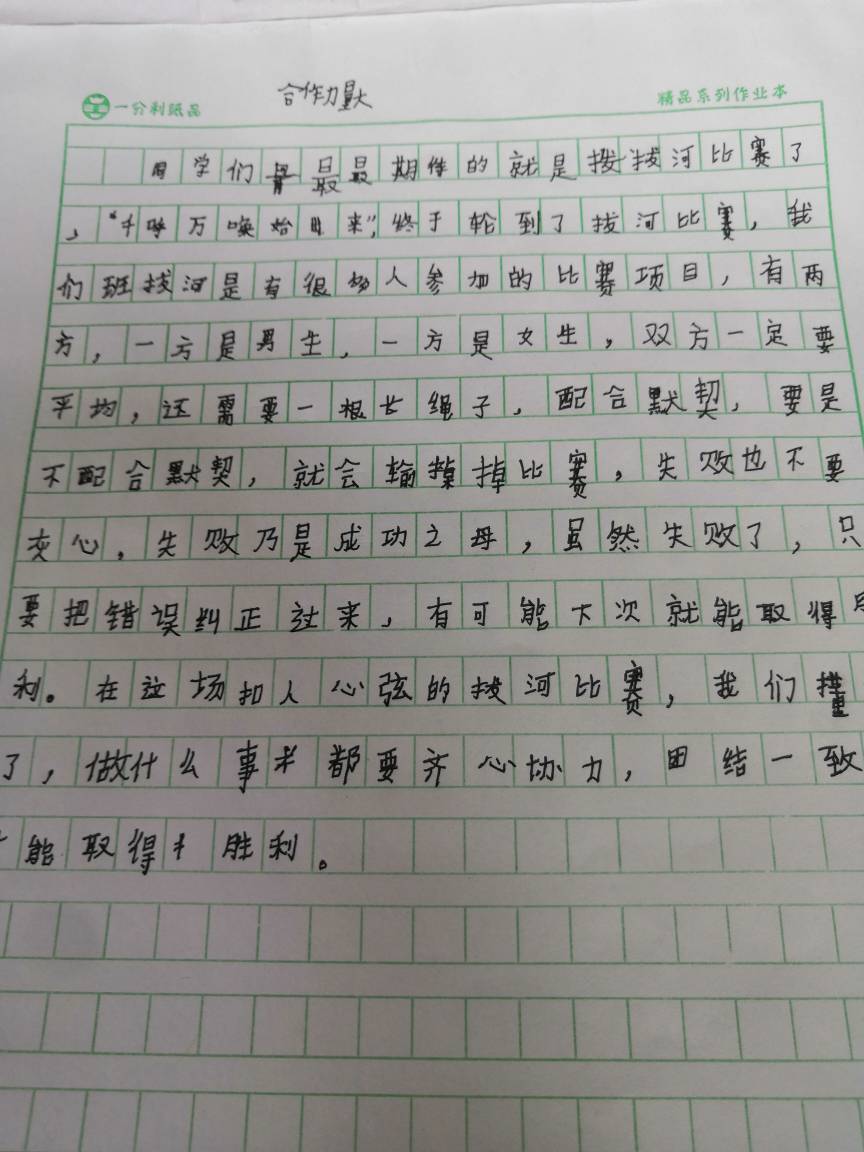 合作力量大
一分利纸品 精品系列作业本
同学们最最期待的就是拨拔河比赛了
，“千呼万唤始出来”，终于轮到了拔河比赛，我
们班拔河是有很多人参加的比赛项目，有两
方，一方是男生，一方是女生，双方一定要
平均，还需要一根长绳子，配合默契，要是
不配合默契，就会输掉掉比赛，失败也不要
灰心，失败乃是成功之母，虽然失败了，只
要把错误纠正过来，有可能下次就能取得
利。在这场扣人心弦的拔河比赛，我们懂
了，做什么事都要齐心协力，团结一致
能取得胜利。